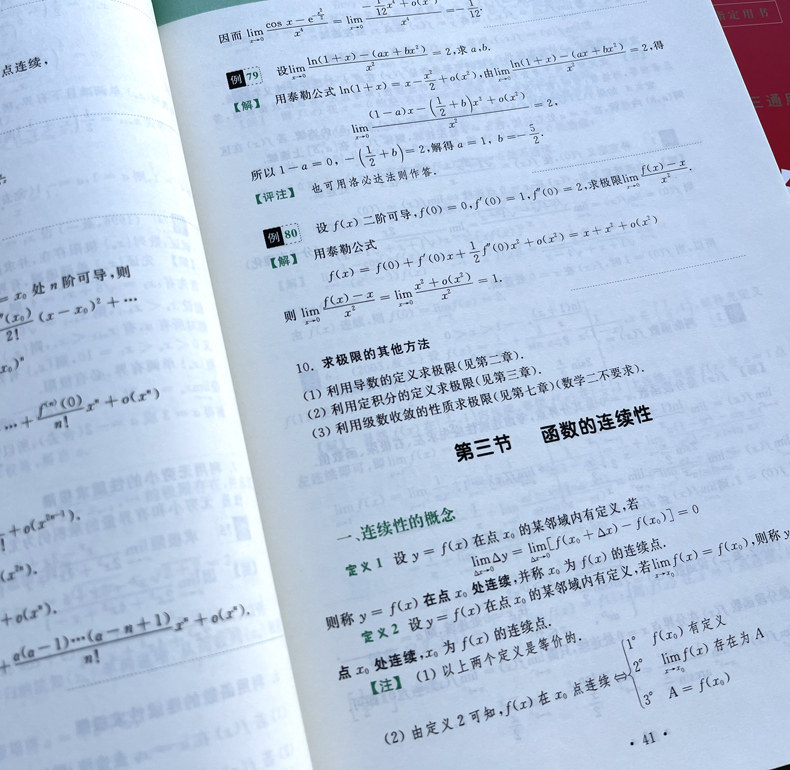 点连续,
= x₀ 处 n 阶可导,则
(x₀)/2! (x − x₀)² + ⋯
x₀)ⁿ
⋯ + f⁽ⁿ⁾(0)/n! xⁿ + o(xⁿ)
+ o(x²ⁿ⁻¹).
(x²ⁿ).
+ o(xⁿ).
+ a(a−1)⋯(a−n+1)/n! xⁿ + o(xⁿ).
因而 lim_{x→0} (cos x − e^{−x²/2})/x⁴ = lim_{x→0} (−1/12 x⁴ + o(x⁴))/x⁴ = −1/12.
例 79 设 lim_{x→0} (ln(1+x) − (ax + bx²))/x² = 2, 求 a, b.
【解】 用泰勒公式 ln(1+x) = x − x²/2 + o(x²), 由 lim_{x→0} (ln(1+x) − (ax + bx²))/x² = 2, 得
lim_{x→0} ((1−a)x − (1/2 + b)x² + o(x²))/x² = 2,
所以 1 − a = 0, −(1/2 + b) = 2, 解得 a = 1, b = −5/2.
【评注】 也可用洛必达法则作答.
例 80 设 f(x) 二阶可导, f(0) = 0, f′(0) = 1, f″(0) = 2, 求极限 lim_{x→0} (f(x) − x)/x².
【解】 用泰勒公式
f(x) = f(0) + f′(0)x + 1/2 f″(0)x² + o(x²) = x + x² + o(x²)
则 lim_{x→0} (f(x) − x)/x² = lim_{x→0} (x² + o(x²))/x² = 1.
10. 求极限的其他方法
(1) 利用导数的定义求极限(见第二章).
(2) 利用定积分的定义求极限(见第三章).
(3) 利用级数收敛的性质求极限(见第七章)(数学二不要求).
第三节 函数的连续性
一、连续性的概念
定义 1 设 y = f(x) 在点 x₀ 的某邻域内有定义,若
lim_{Δx→0} Δy = lim_{Δx→0} [f(x₀ + Δx) − f(x₀)] = 0
则称 y = f(x) 在点 x₀ 处连续,并称 x₀ 为 f(x) 的连续点.
定义 2 设 y = f(x) 在点 x₀ 的某邻域内有定义,若 lim_{x→x₀} f(x) = f(x₀), 则称 y
点 x₀ 处连续, x₀ 为 f(x) 的连续点.
【注】 (1) 以上两个定义是等价的.
(2) 由定义 2 可知, f(x) 在 x₀ 点连续 ⇔ { 1° f(x₀) 有定义
2° lim_{x→x₀} f(x) 存在为 A
3° A = f(x₀)
· 41 ·
定用书
三通